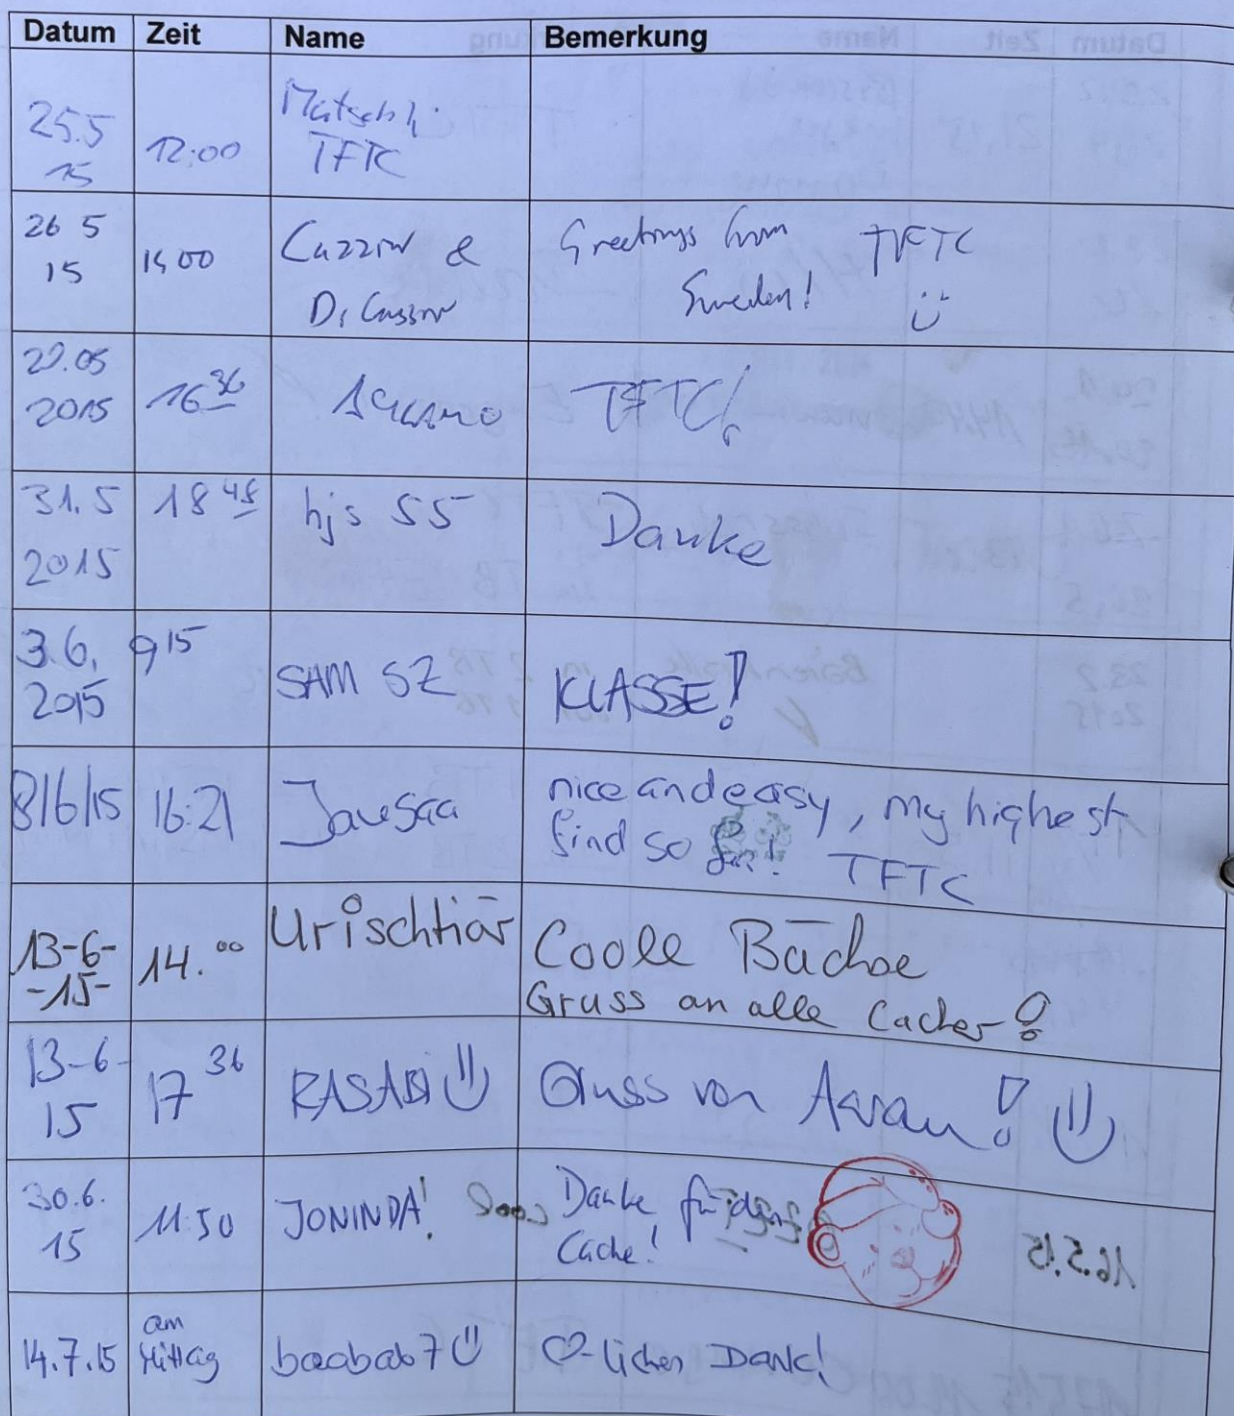 Datum Zeit Name Bemerkung
25.5 15 12:00 TFTC
26 5 15 15 00 &
Greetings from Sweden! TFTC
29.05 2015 16 36 TFTC!
31.5 2015 18 48 hjs 55 Danke
3.6. 2015 9 15 SAM SZ KLASSE!
8/6/15 16:21 nice and easy, my highest
find so far! TFTC
13-6- -15- 14.00 Urischtiär Coole Büchse
Gruss an alle Cacher!
13-6-15 17 36 RASABI Gruss von Aarau!
30.6. 15 11:50 JONINDA! Danke für den
Cache!
16.5.15
14.7.15 am Mittag baobab7 ♡-lichen Dank!